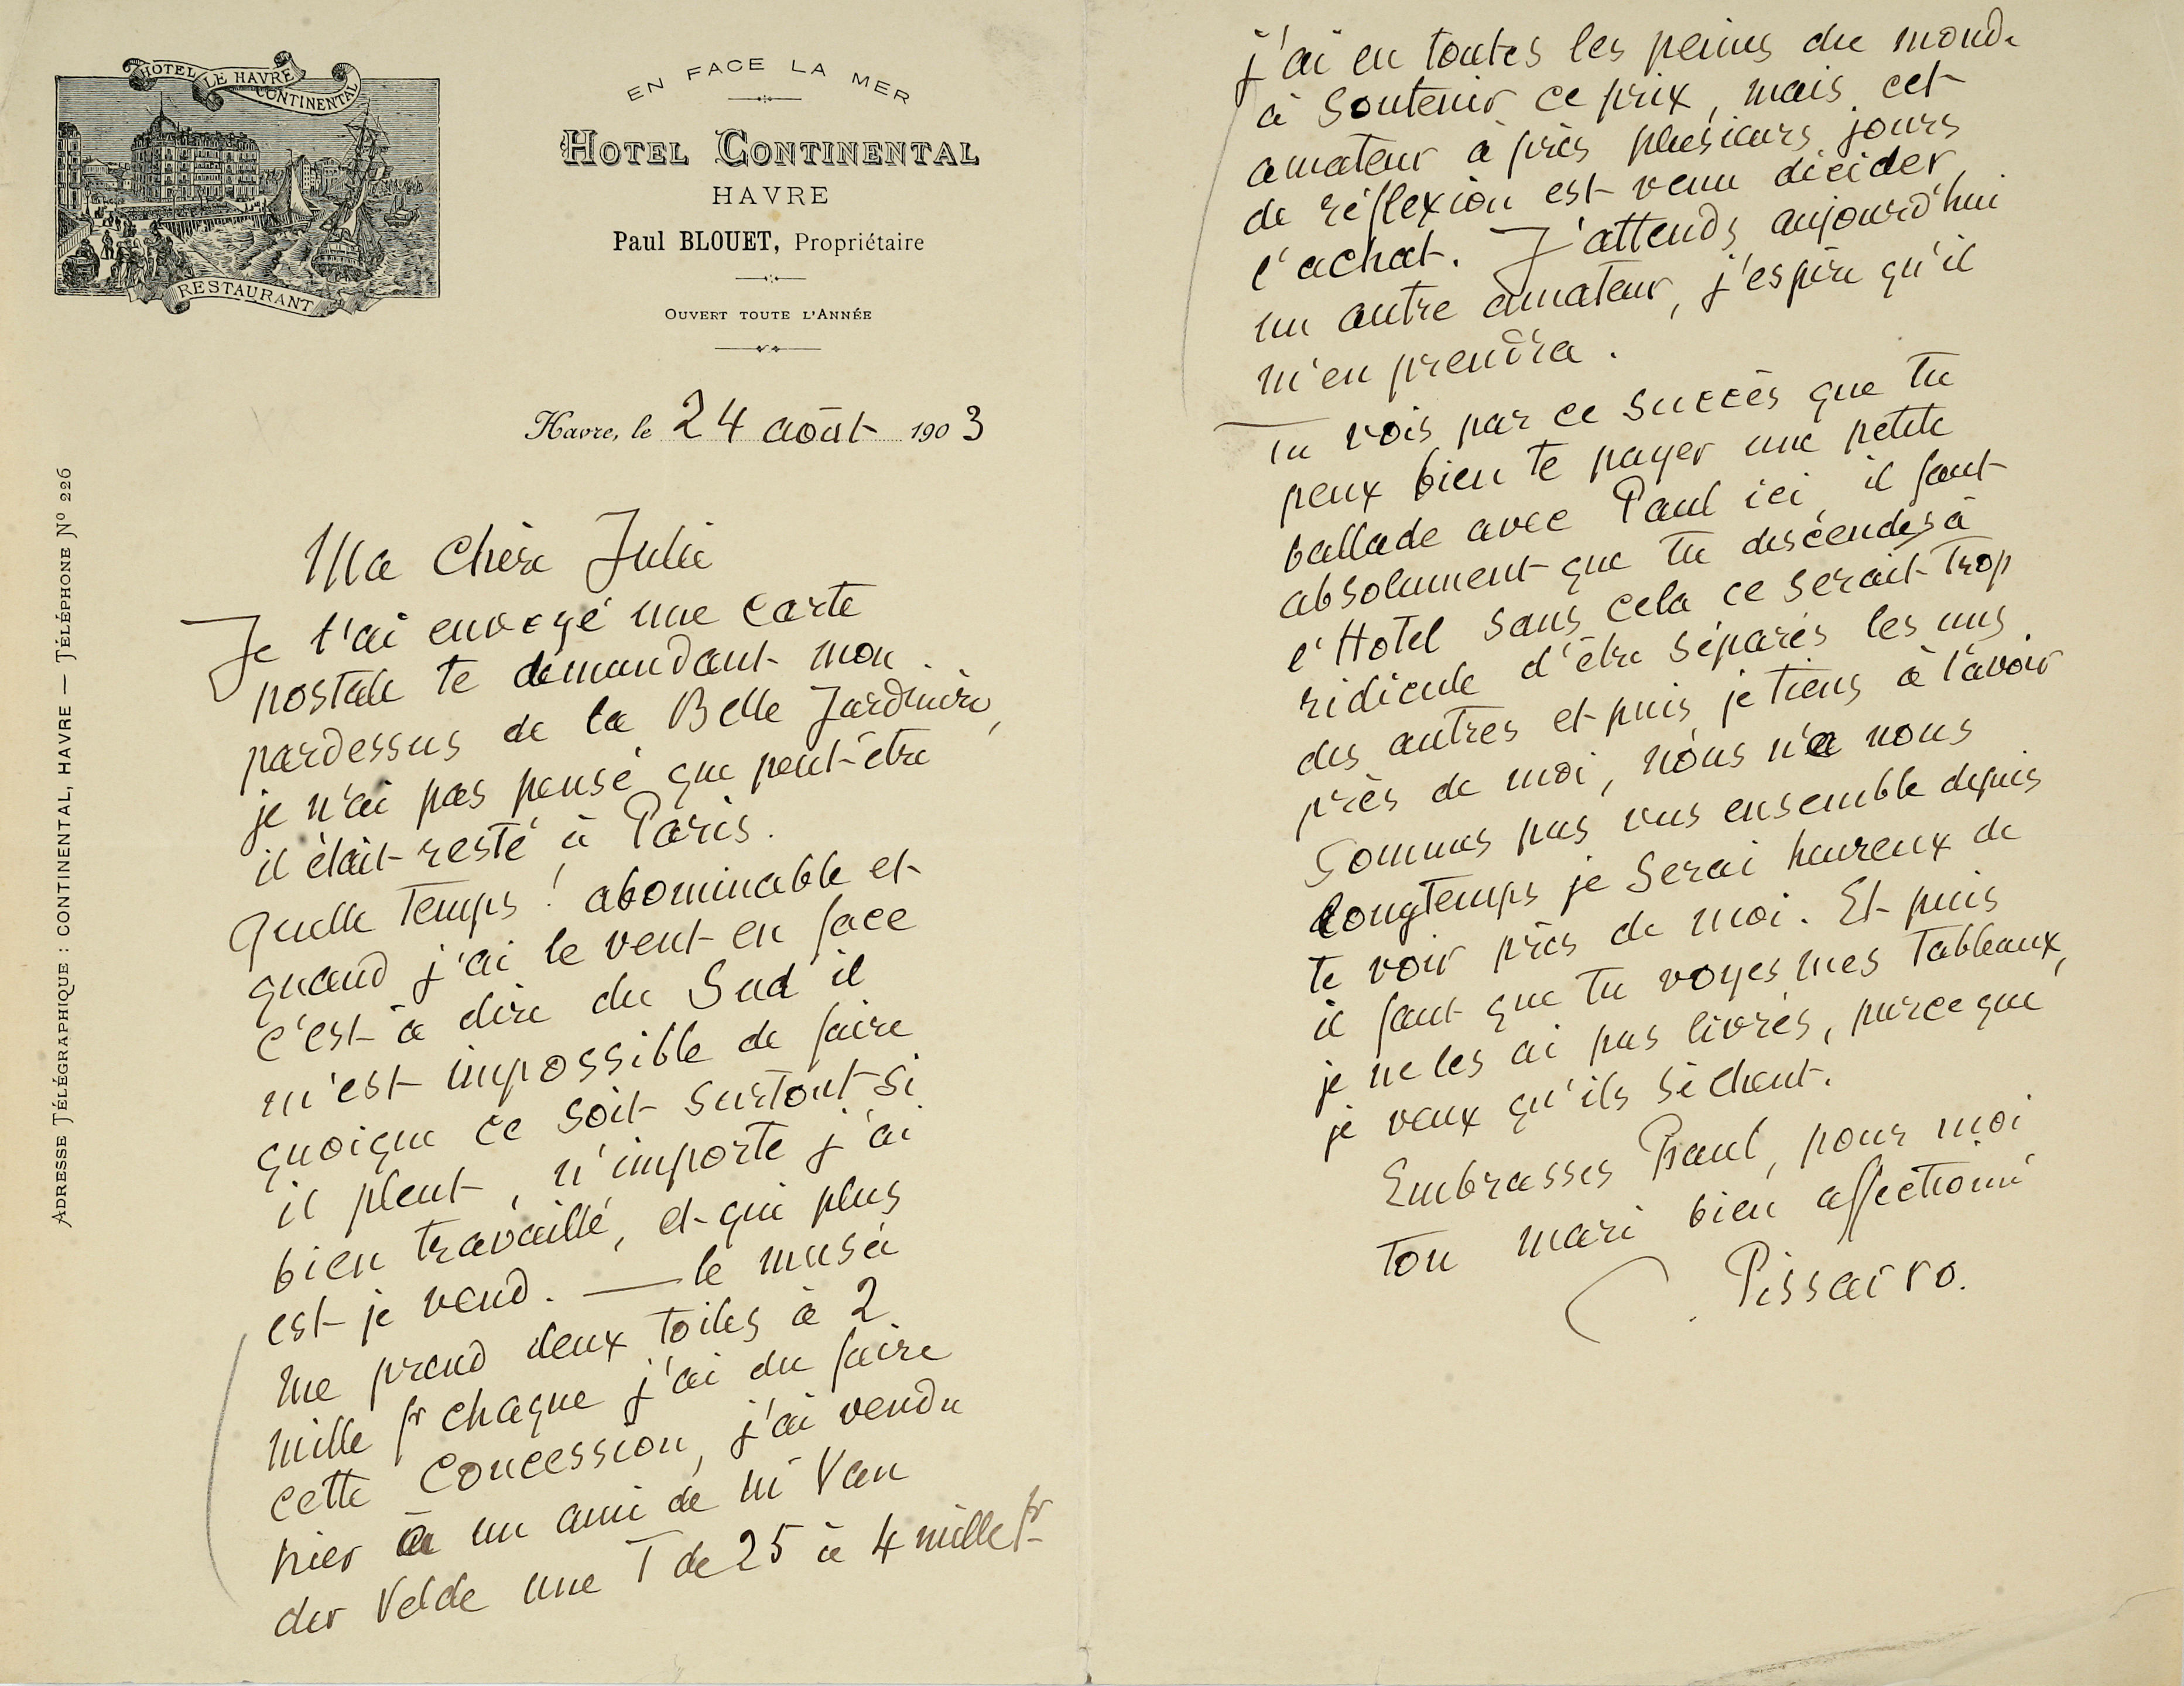 HOTEL LE HAVRE CONTINENTAL
RESTAURANT
EN FACE LA MER
HOTEL CONTINENTAL
HAVRE
Paul BLOUET, Propriétaire
OUVERT TOUTE L'ANNÉE
Havre, le 24 août 1903
ADRESSE TÉLÉGRAPHIQUE : CONTINENTAL, HAVRE — TÉLÉPHONE Nº 226
Ma Chère Julie
Je t'ai envoyé une carte
postale te demandant mon
pardessus de la Belle Jardinière,
je n'ai pas pensé que peut-être
il était resté à Paris.
Quelle temps ! abominable et
quand j'ai le vent en face
c'est à dire du Sud il
m'est impossible de faire
quoique ce soit surtout si
il pleut, n'importe j'ai
bien travaillé, et qui plus
est je vend. — le musée
me prend deux toiles à 2
mille fr chaque j'ai du faire
cette concession, j'ai vendu
hier à un ami de M Van
der Velde une T de 25 à 4 mille fr
j'ai eu toutes les peines du monde
à soutenir ce prix, mais cet
amateur après plusieurs jours
de réflexion est venu décider
l'achat. J'attends aujourd'hui
un autre amateur, j'espère qu'il
m'en prendra.
Tu vois par ce succès que tu
peux bien te payer une petite
ballade avec Paul ici il faut
absolument que tu descendes à
l'Hotel sans cela ce serait trop
ridicule d'être séparés les uns
des autres et puis je tiens à t'avoir
près de moi, nous ne nous
sommes pas vus ensemble depuis
longtemps je serai heureux de
te voir près de moi. Et puis
il faut que tu voyes mes tableaux,
je ne les ai pas livrés, parceque
je veux qu'ils sèchent.
Embrasses Paul, pour moi
ton mari bien affectionné
C. Pissarro.